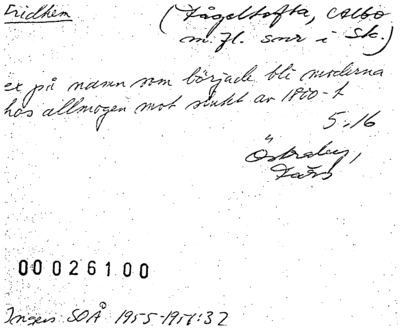 Fridhem
(Fågeltofta, Albo
m. fl. snr i Sk.)
ex på namn som började bli moderna
hos allmogen mot slutet av 1800-t
5:16
Östraby,
Färs
00026100
Ingers SOÅ 1955-1956:32